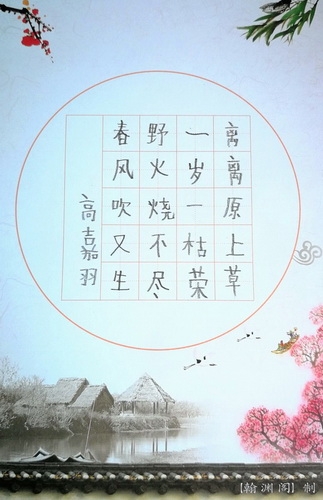 离离原上草
一岁一枯荣
野火烧不尽
春风吹又生
高嘉羽
【翰渊阁】制